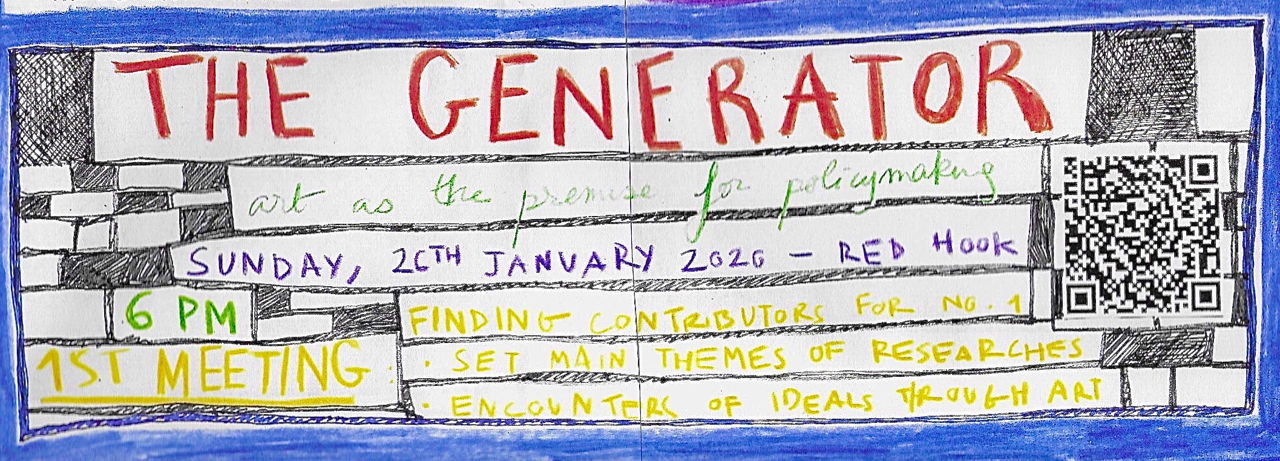 THE GENERATOR
art as the premise for policymaking
SUNDAY, 26TH JANUARY 2020 – RED HOOK
6 PM
FINDING CONTRIBUTORS FOR NO. 1
1ST MEETING
· SET MAIN THEMES OF RESEARCHES
· ENCOUNTERS OF IDEALS THROUGH ART